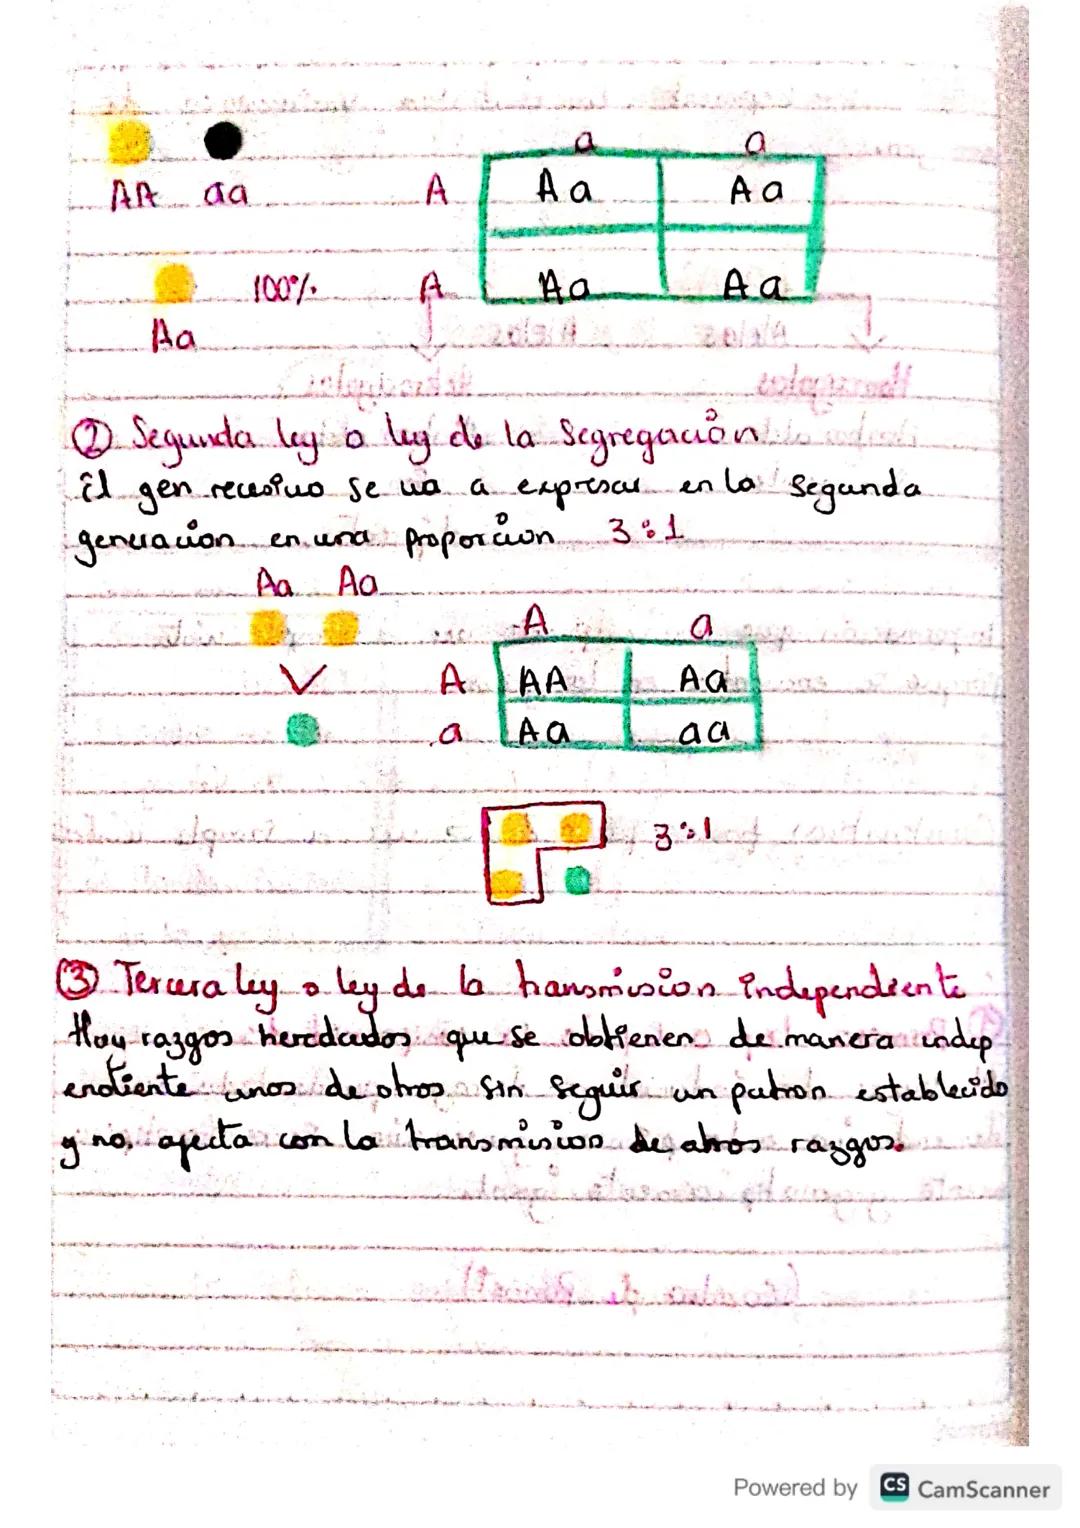 a a
AA aa A Aa Aa
100% A Aa Aa
Aa
② Segunda ley o ley de la Segregación
El gen recesivo se va a expresar en la Segunda
generacion en una proporcion 3:1
Aa Aa
A a
A AA Aa
a Aa aa
3:1
③ Tercera ley o ley de la transmision independiente
Hay razgos heredados que se obtienen de manera indep
endiente unos de otros sin seguir un patron establecido
y no afecta con la transmision de otros razgos.
Powered by CS CamScanner